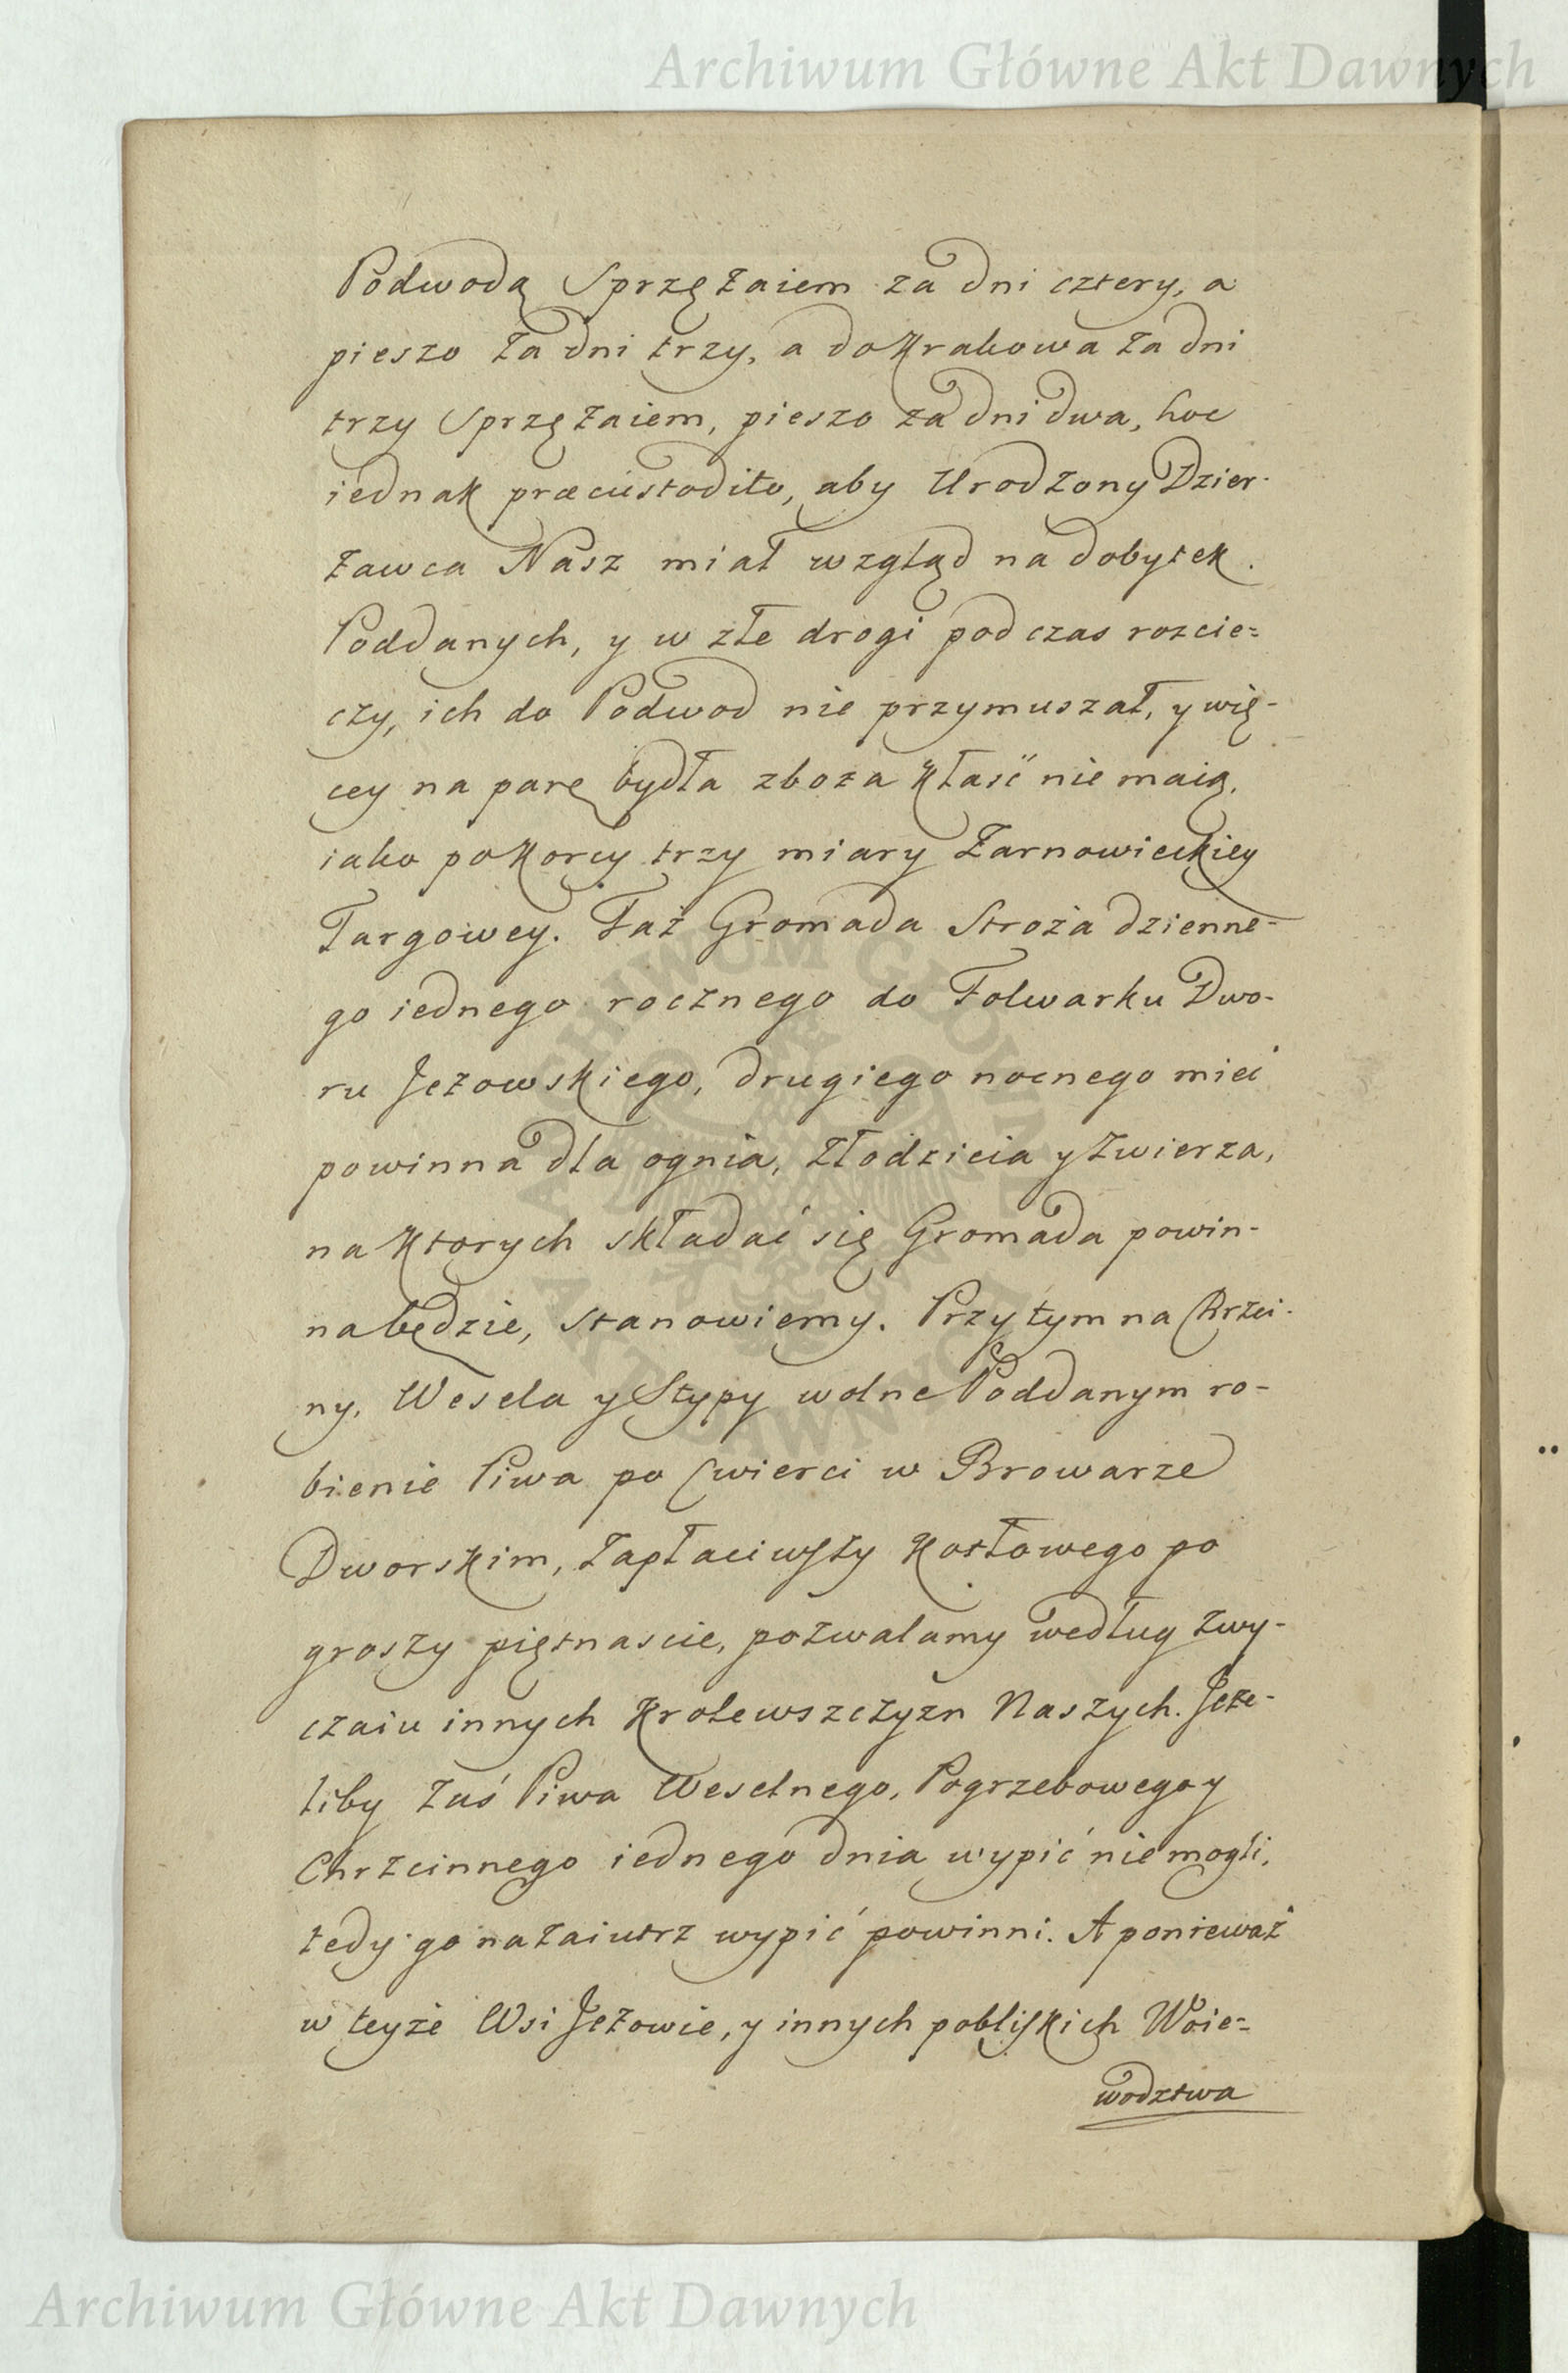 Archiwum Główne Akt Dawnych
Podwodą Sprzężaiem za dni cztery, a
pieszo za dni trzy, a do Krakowa za dni
trzy Sprzężaiem, pieszo za dni dwa, hoc
iednak præcustodito, aby Urodzony Dzier-
żawca Nasz miał wzgląd na dobytek
Poddanych, y w złe drogi podczas rozcie=
czy, ich do Podwod nie przymuszał, y wię-
cey na parę bydła zboża kłaść nie maią,
iako po korcy trzy miary Żarnowieckiey
Targowey. Taż Gromada Stroża dzienne-
go iednego rocznego do Folwarku Dwo-
ru Jeżowskiego, drugiego nocnego mieć
powinna dla ognia, złodzieia y zwierza,
na ktorych składać się Gromada powin-
na będzie, stanowiemy. Przytym na Chrzci-
ny, Wesela y Stypy wolne Poddanym ro-
bienie Piwa po Cwierci w Browarze
Dworskim, zapłaciwszy Kotłowego po
groszy piętnascie, pozwalamy według zwy-
czaiu innych Krolewszczyzn Naszych. Jeże-
liby zaś Piwa Weselnego, Pogrzebowego y
Chrzcinnego iednego dnia wypić nie mogli,
tedy go nazaiutrz wypić powinni. A ponieważ
w teyże Wsi Jeżowie, y innych pobliskich Woie=
wodztwa
ARCHIWUM GŁÓWNE
AKT DAWNYCH
Archiwum Główne Akt Dawnych